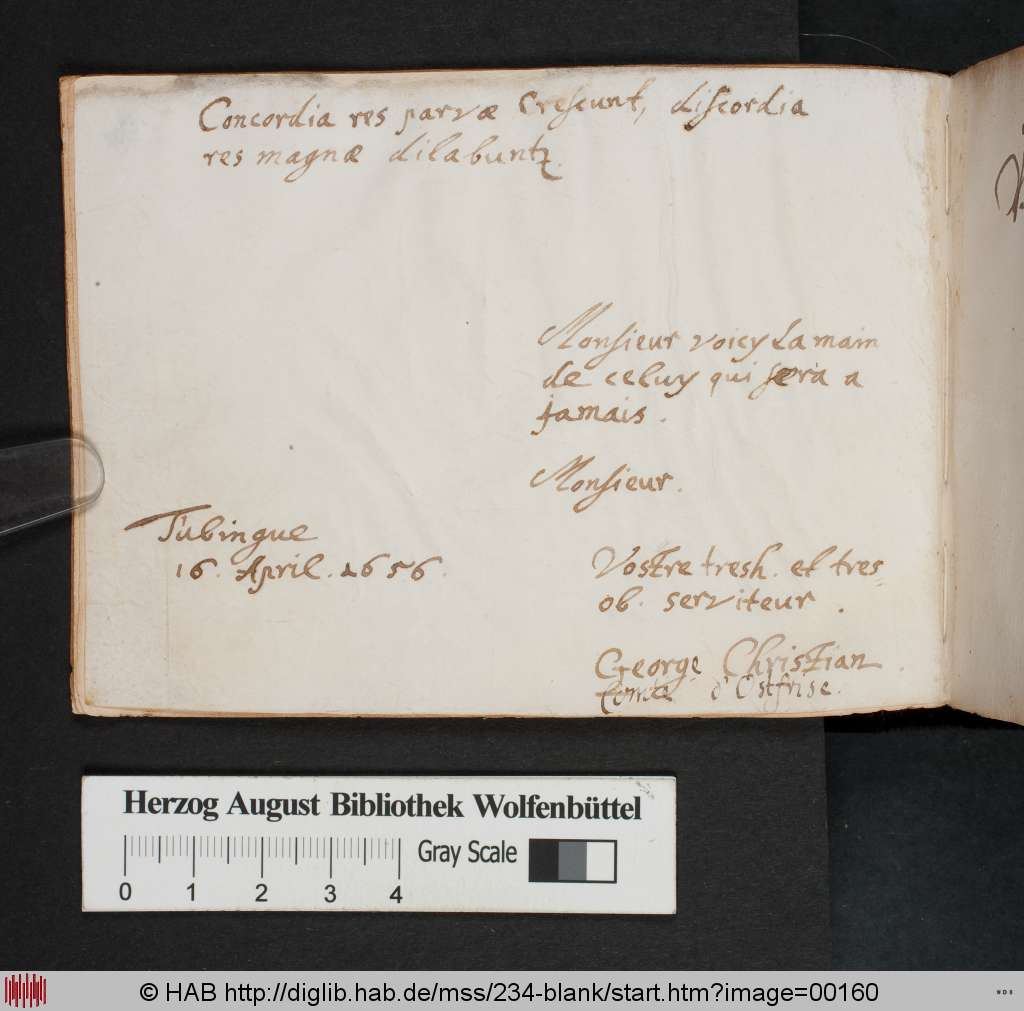 Concordia res parvæ Crescunt, discordia
res magnæ dilabuntꝛ.
Monsieur voicy La main
de celuy qui sera a
jamais.
Monsieur.
Tubingue
16. April. 1656.
Vostre tresh. et tres
ob. serviteur.
George Christian
d'Ostfrise.
Herzog August Bibliothek Wolfenbüttel
Gray Scale
0 1 2 3 4
© HAB http://diglib.hab.de/mss/234-blank/start.htm?image=00160